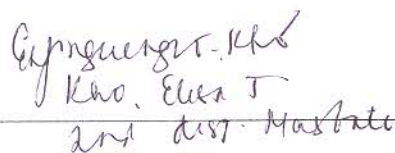 Kho
Kho, Elisa T
2nd dist. Masbate